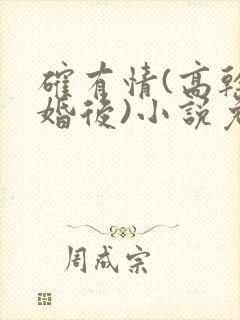 確有情(高幹
婚後)小說免
周成宗